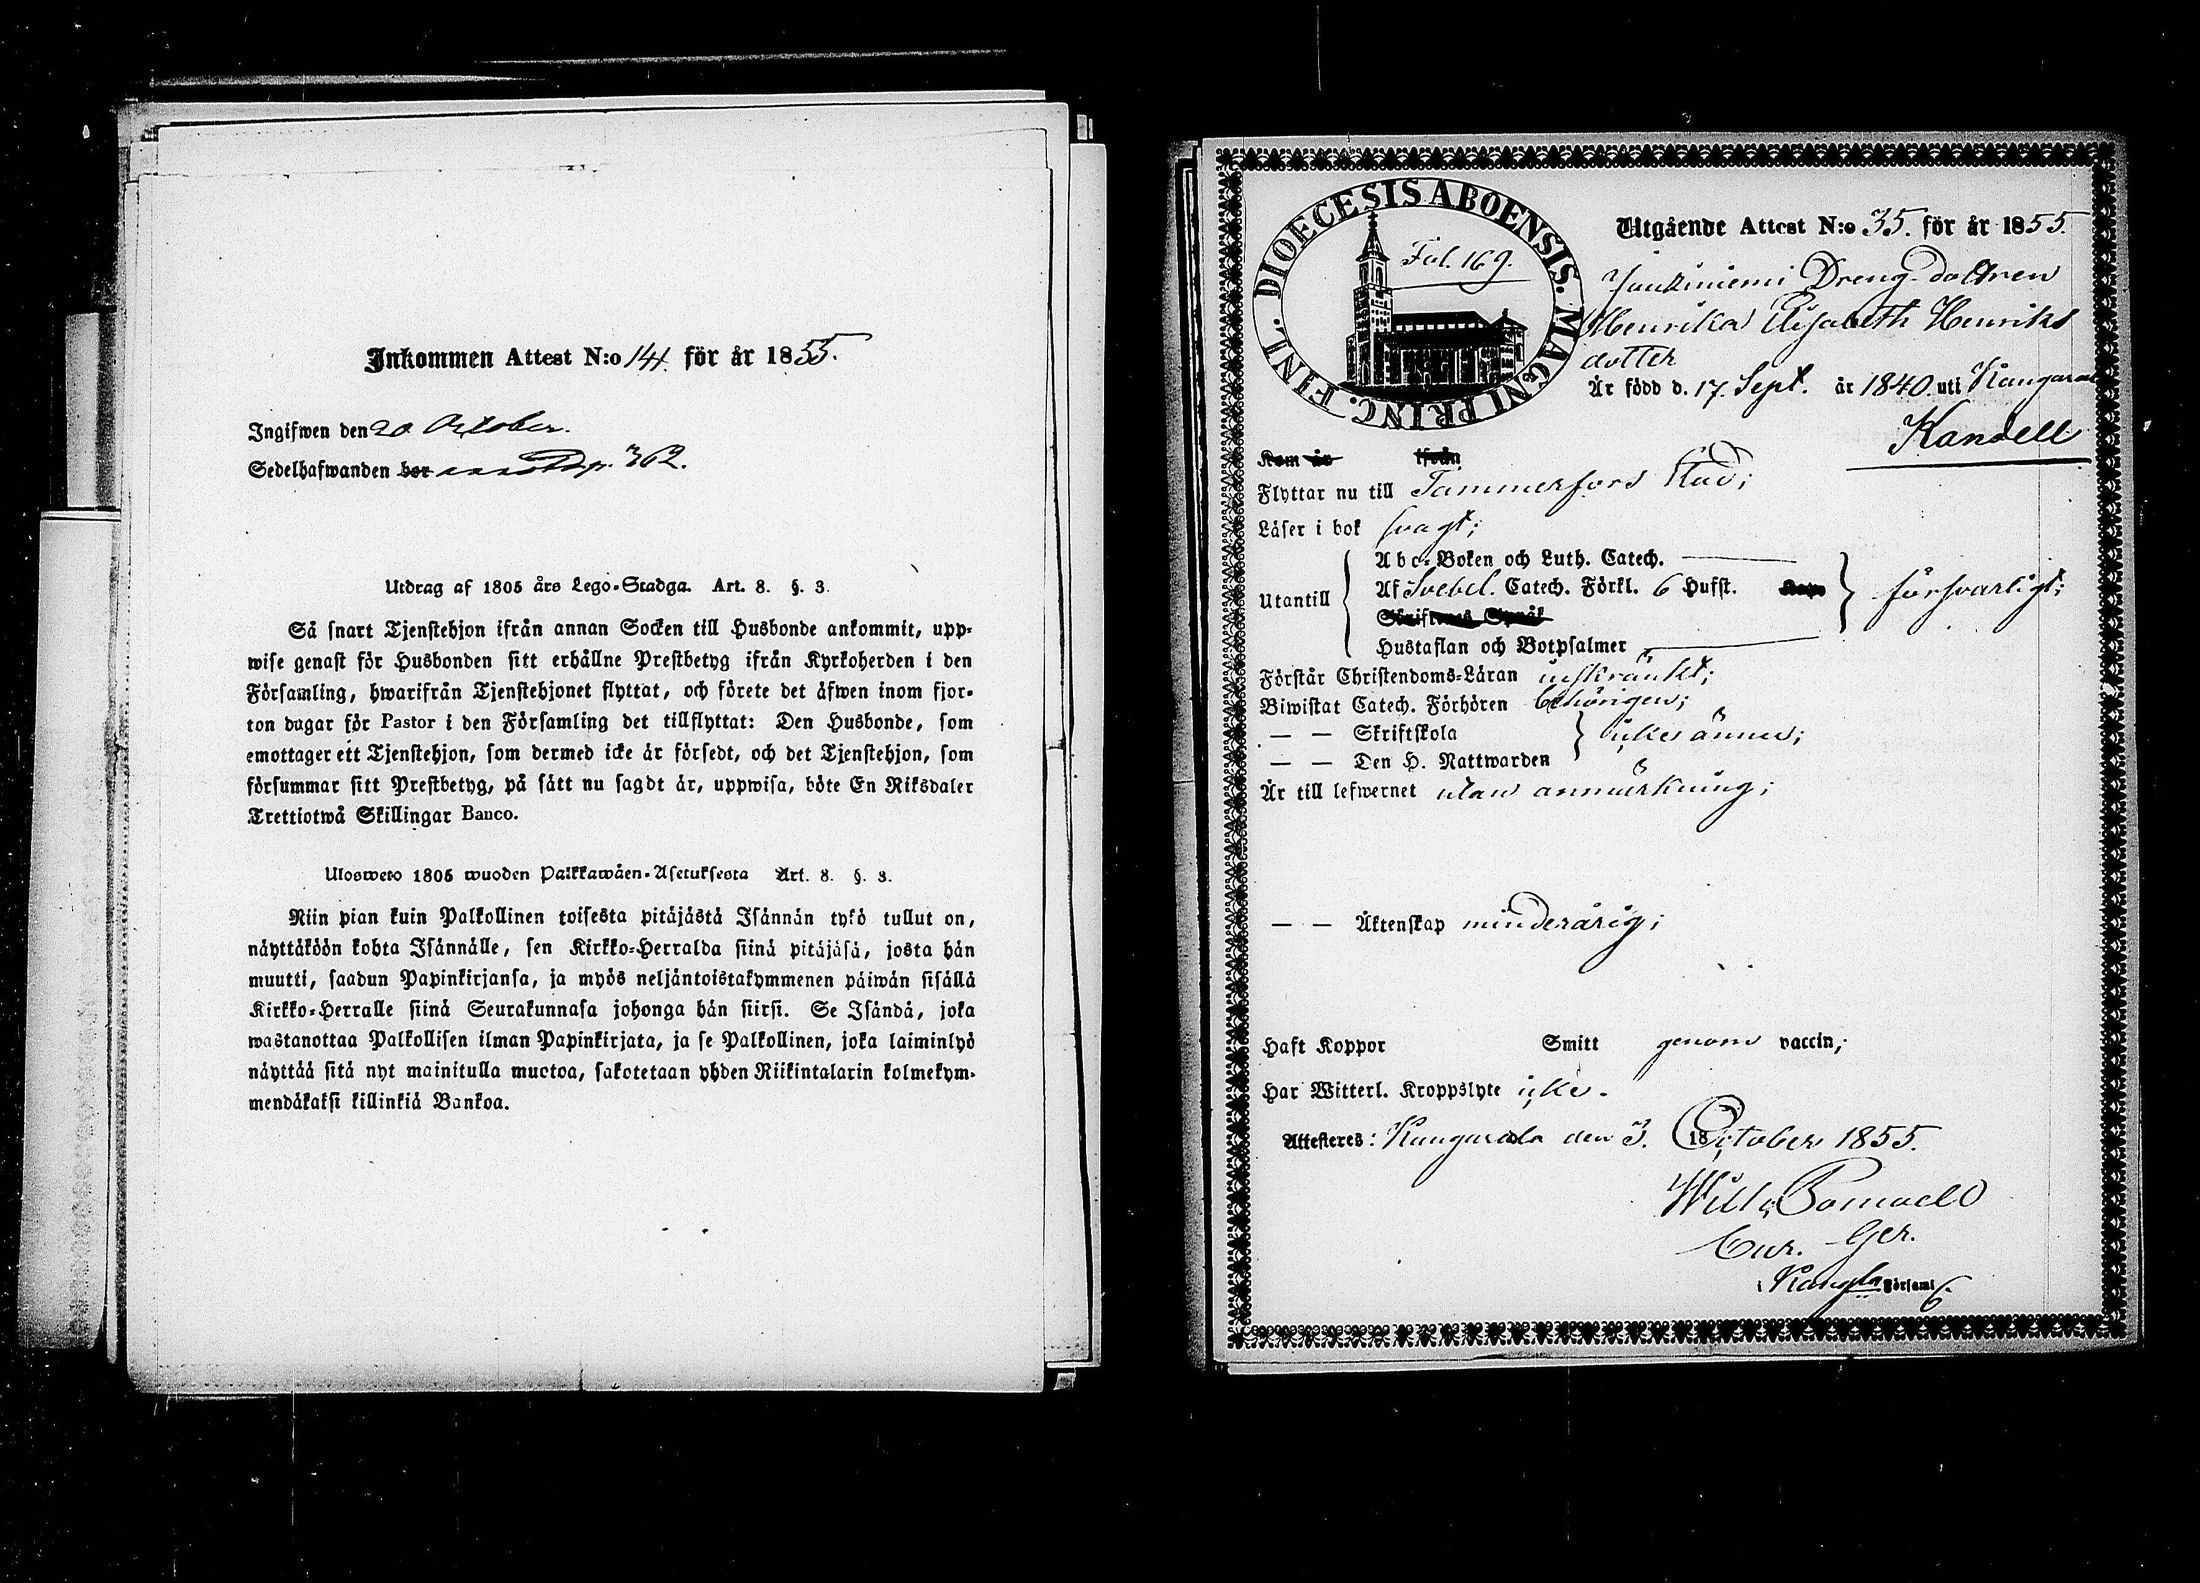 Inkommen Attest N:o 144. för år 1855.
Ingifwen den 20 October.
Sedelhafwanden bor p. 362.
Utdrag af 1805 års Lego-Stadga. Art. 8. §. 3.
Så snart Tjenstehjon ifrån annan Socken till Husbonde ankommit, upp-
wise genast för Husbonden sitt erhållne Prestbetyg ifrån Kyrkoherden i den
Församling, hwarifrån Tjenstehjonet flyttat, och förete det äfwen inom fjor-
ton dagar för Pastor i den Församling det tillflyttat: Den Husbonde, som
emottager ett Tjenstehjon, som dermed icke är försedt, och det Tjenstehjon, som
försummar sitt Prestbetyg, på sätt nu sagdt är, uppwisa, böte En Riksdaler
Trettiotwå Skillingar Banco.
Ulosweto 1805 wuoden Palkkawäen-Asetuksesta Art. 8. §. 3.
Niin pian kuin Palkollinen toisesta pitäjästä Isännän tykö tullut on,
näyttäköön kohta Isännälle, sen Kirkko-Herralda siinä pitäjäsä, josta hän
muutti, saadun Papinkirjansa, ja myös neljäntoistakymmenen päiwän sisällä
Kirkko-Herralle siinä Seurakunnasa johonga hän siirsi. Se Isändä, joka
wastanottaa Palkollisen ilman Papinkirjata, ja se Palkollinen, joka laiminlyö
näyttää sitä nyt mainitulla muotoa, sakotetaan yhden Riikintalarin kolmekym-
mendäkaksi killinkiä Bankoa.
DIOECESIS ABOENSIS. MAGNI PRINC. FINL.
Fol. 169.
Utgående Attest N:o 35. för år 1855.
Dreng-dottren
Henrika Elisabeth Henriks
dotter
Är född d. 17. Sept. år 1840. uti Kangasala
Kandell
Kom år ifrån
Flyttar nu till Tammerfors Stad;
Läser i bok svagt;
Abc-Boken och Luth. Catech.
Utantill Af Svebel. Catech. Förkl. 6 Hufst. Kap. försvarligt;
Skriftenes Språk
Hustaflan och Botpsalmer
Förstår Christendoms-Läran inskränkt;
Biwistat Catech. Förhören behörigen;
— — Skriftskola icke ännu;
— — Den H. Nattwarden
Är till lefwernet utan anmärkning;
— — Äktenskap minderårig;
Haft Koppor Smitt genom vaccin;
Har Witterl. Kroppslyte icke.
Attesteres: Kangasala den 3. 18 October 1855.
Cur. Ger.
Kangla Församl.